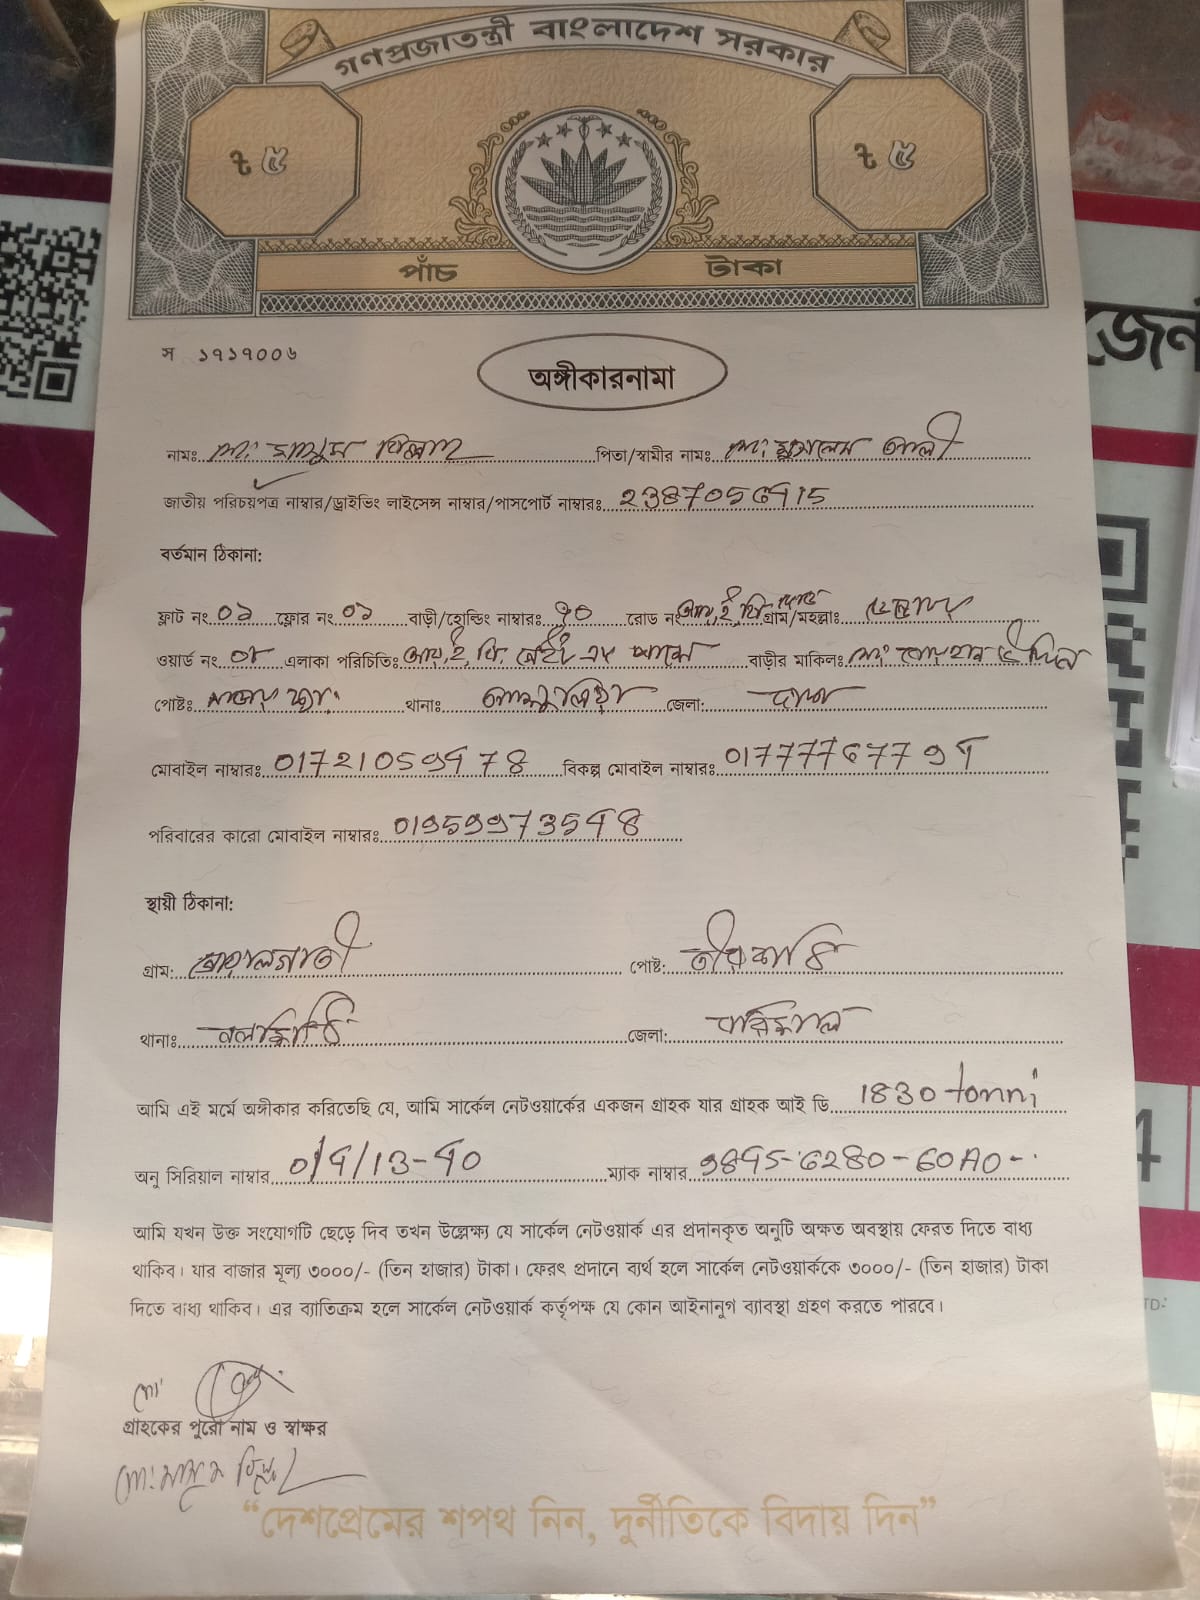 গণপ্রজাতন্ত্রী বাংলাদেশ সরকার
৳ ৫ ৳ ৫
পাঁচ টাকা
স ১৭১৭০০৬
অঙ্গীকারনামা
নামঃ মো: মাসুম বিল্লাহ পিতা/স্বামীর নামঃ মো: মুসলেম আলী
জাতীয় পরিচয়পত্র নাম্বার/ড্রাইভিং লাইসেন্স নাম্বার/পাসপোর্ট নাম্বারঃ 2387056415
বর্তমান ঠিকানা:
ফ্লাট নং ০১ ফ্লোর নং ০১ বাড়ী/হোল্ডিং নাম্বারঃ ৭০ রোড নং গ্রাম/মহল্লাঃ
ওয়ার্ড নং ০৮ এলাকা পরিচিতিঃ বাড়ীর মালিকঃ
পোষ্টঃ থানাঃ আশুলিয়া জেলা: ঢাকা
মোবাইল নাম্বারঃ 01721059478 বিকল্প মোবাইল নাম্বারঃ 01777767794
পরিবারের কারো মোবাইল নাম্বারঃ 01959973548
স্থায়ী ঠিকানা:
গ্রাম: পোষ্ট:
থানাঃ জেলা: বরিশাল
আমি এই মর্মে অঙ্গীকার করিতেছি যে, আমি সার্কেল নেটওয়ার্কের একজন গ্রাহক যার গ্রাহক আই ডি 1830 tonni
অনু সিরিয়াল নাম্বার 0/4/13-40 ম্যাক নাম্বার 9845-6280-60A0-
আমি যখন উক্ত সংযোগটি ছেড়ে দিব তখন উল্লেক্ষ্য যে সার্কেল নেটওয়ার্ক এর প্রদানকৃত অনুটি অক্ষত অবস্থায় ফেরত দিতে বাধ্য
থাকিব। যার বাজার মূল্য ৩০০০/- (তিন হাজার) টাকা। ফেরৎ প্রদানে ব্যর্থ হলে সার্কেল নেটওয়ার্ককে ৩০০০/- (তিন হাজার) টাকা
দিতে বাধ্য থাকিব। এর ব্যাতিক্রম হলে সার্কেল নেটওয়ার্ক কর্তৃপক্ষ যে কোন আইনানুগ ব্যাবস্থা গ্রহণ করতে পারবে।
মো:
গ্রাহকের পুরো নাম ও স্বাক্ষর
মো: মাসুম বিল্লাহ
“দেশপ্রেমের শপথ নিন, দুর্নীতিকে বিদায় দিন”